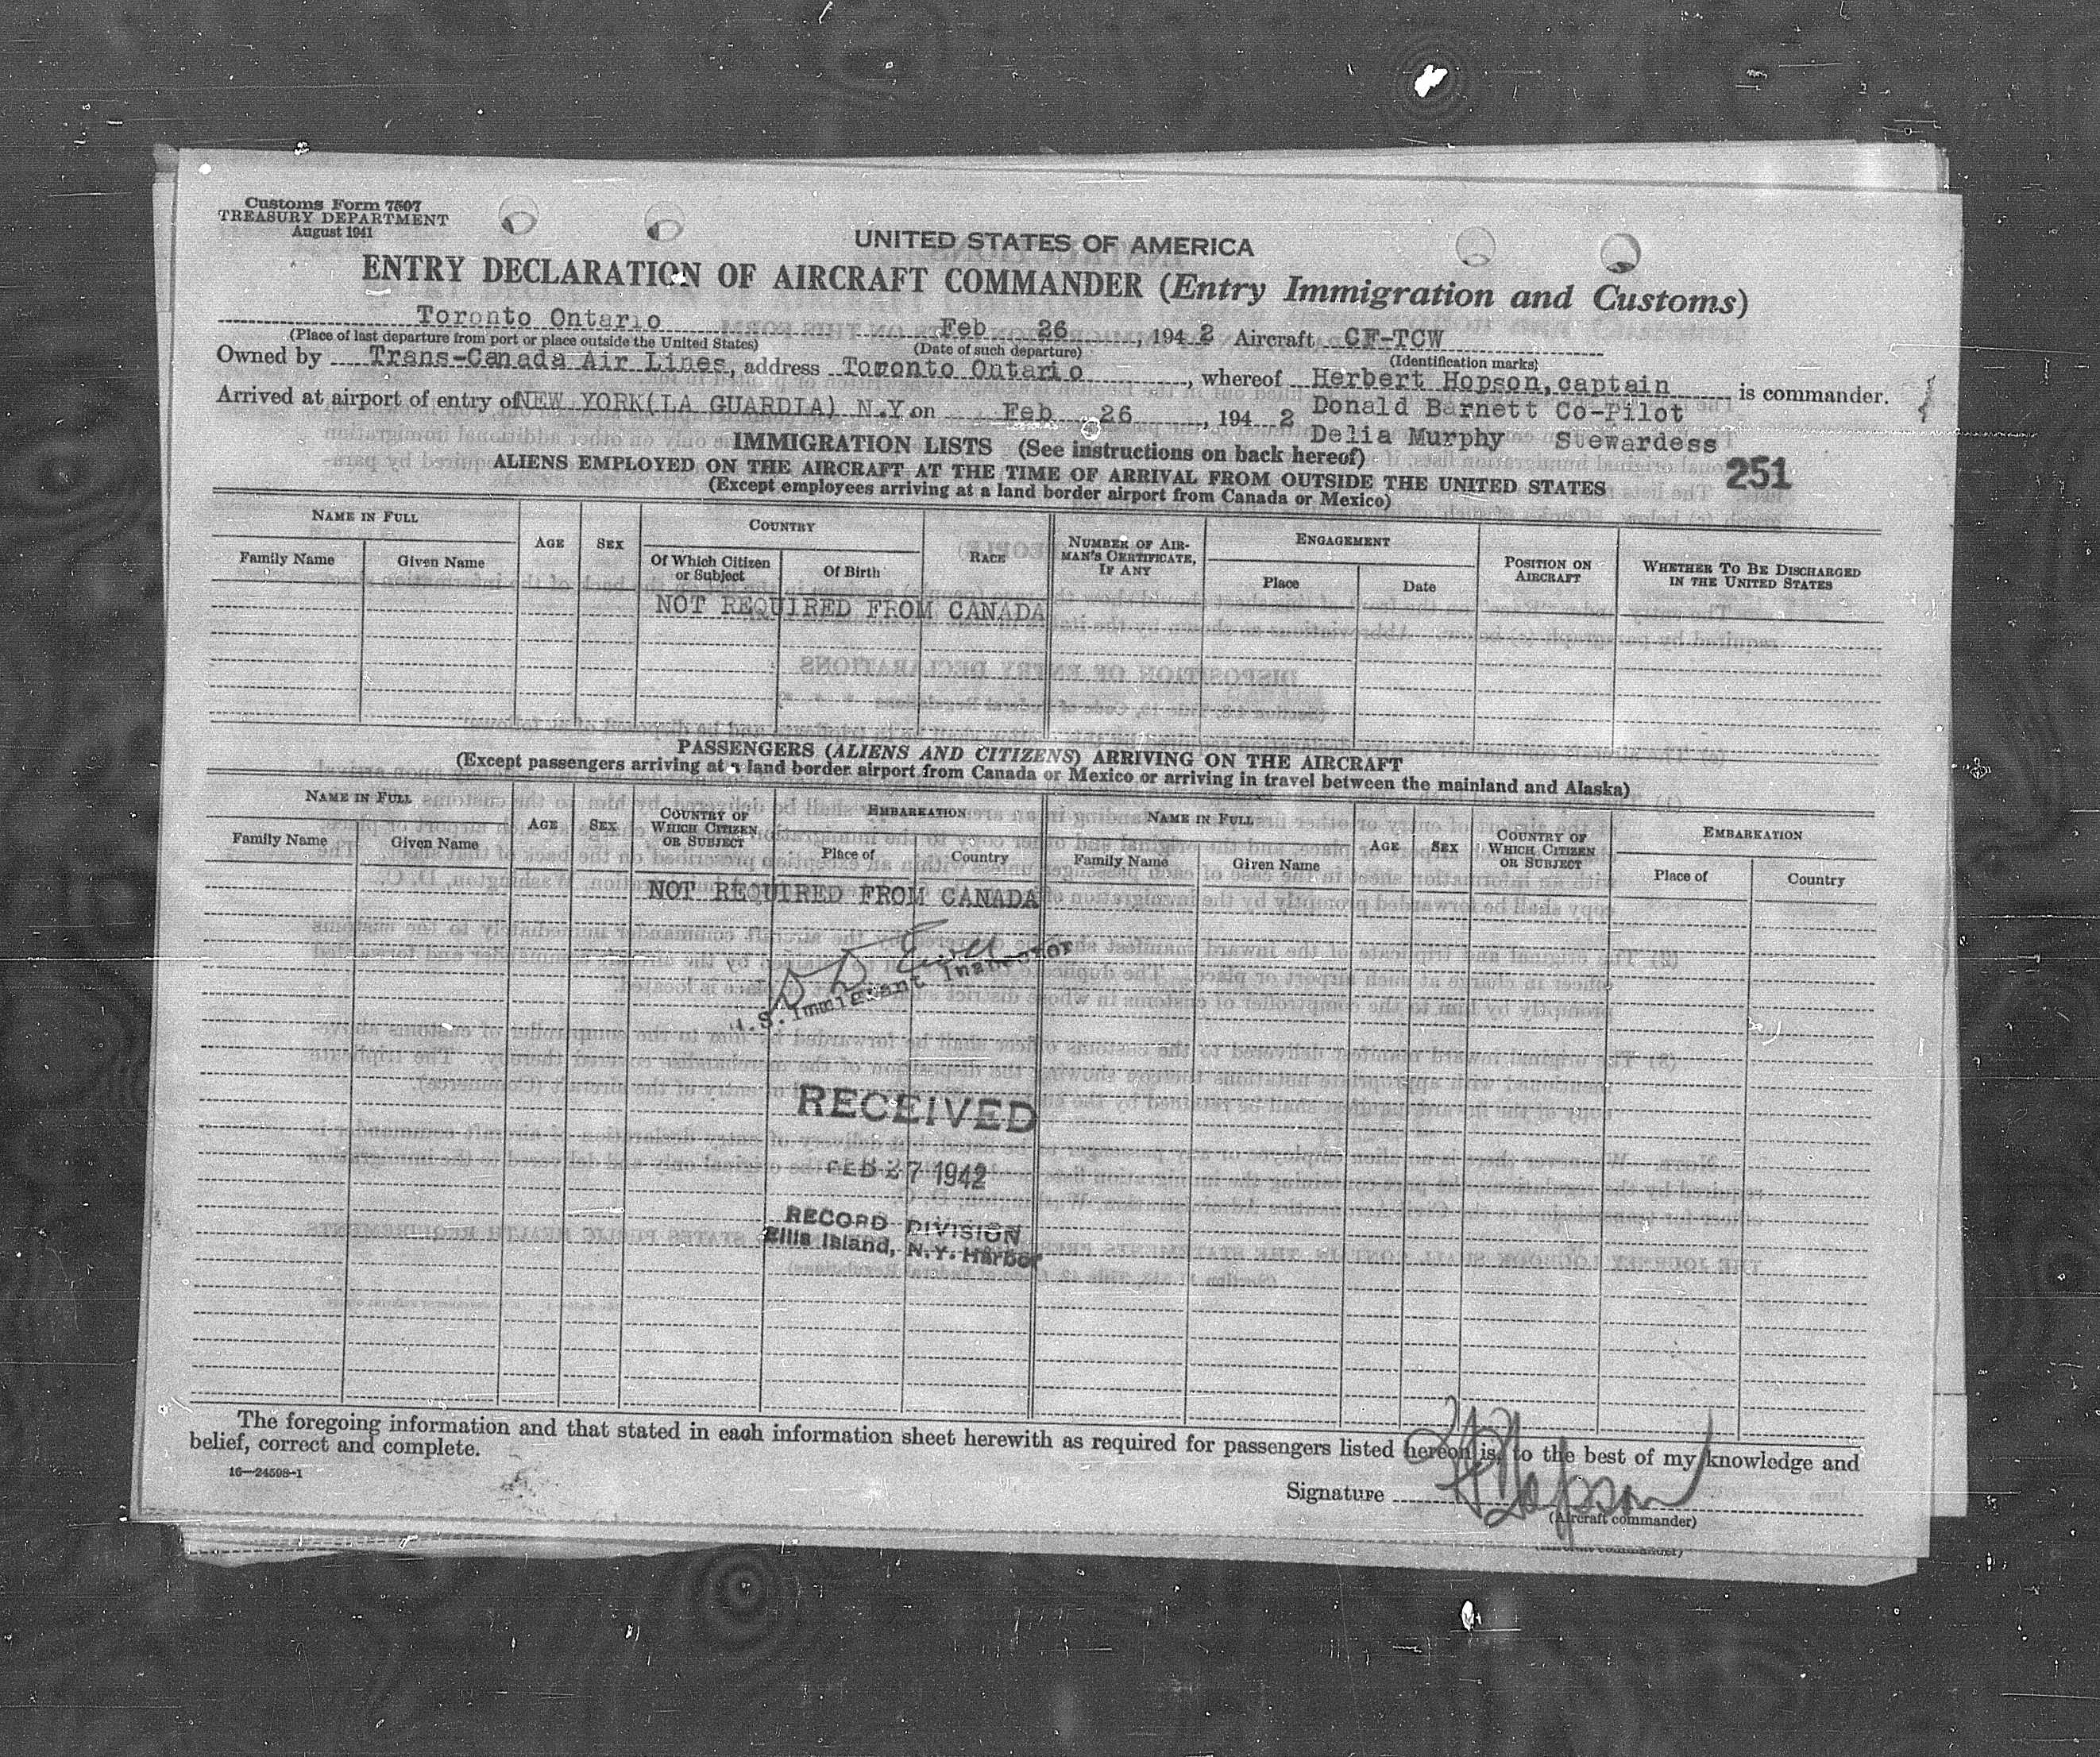 Customs Form 7507
TREASURY DEPARTMENT
August 1941
UNITED STATES OF AMERICA
ENTRY DECLARATION OF AIRCRAFT COMMANDER (Entry Immigration and Customs)
Toronto Ontario Feb 26, 1942 Aircraft CF-TCW
(Place of last departure from port or place outside the United States) (Date of such departure) (Identification marks)
Owned by Trans-Canada Air Lines, address Toronto Ontario, whereof Herbert Hopson, captain is commander.
Arrived at airport of entry of NEW YORK(LA GUARDIA) N.Y. on Feb 26, 1942 Donald Barnett Co-Pilot
Delia Murphy Stewardess
IMMIGRATION LISTS (See instructions on back hereof)
251
ALIENS EMPLOYED ON THE AIRCRAFT AT THE TIME OF ARRIVAL FROM OUTSIDE THE UNITED STATES
(Except employees arriving at a land border airport from Canada or Mexico)
NAME IN FULL AGE SEX COUNTRY RACE NUMBER OF AIRMAN'S CERTIFICATE, IF ANY ENGAGEMENT POSITION ON AIRCRAFT WHETHER TO BE DISCHARGED IN THE UNITED STATES
Family Name Given Name Of Which Citizen or Subject Of Birth Place Date
NOT REQUIRED FROM CANADA
PASSENGERS (ALIENS AND CITIZENS) ARRIVING ON THE AIRCRAFT
(Except passengers arriving at a land border airport from Canada or Mexico or arriving in travel between the mainland and Alaska)
NAME IN FULL AGE SEX COUNTRY OF WHICH CITIZEN OR SUBJECT EMBARKATION NAME IN FULL AGE SEX COUNTRY OF WHICH CITIZEN OR SUBJECT EMBARKATION
Family Name Given Name Place of Country Family Name Given Name Place of Country
NOT REQUIRED FROM CANADA
U.S. Immigrant Inspector
RECEIVED
FEB 27 1942
RECORD DIVISION
Ellis Island, N.Y. Harbor
The foregoing information and that stated in each information sheet herewith as required for passengers listed hereon is, to the best of my knowledge and
belief, correct and complete.
16—24598-1
Signature H Hopson
(Aircraft commander)
(Aircraft commander)